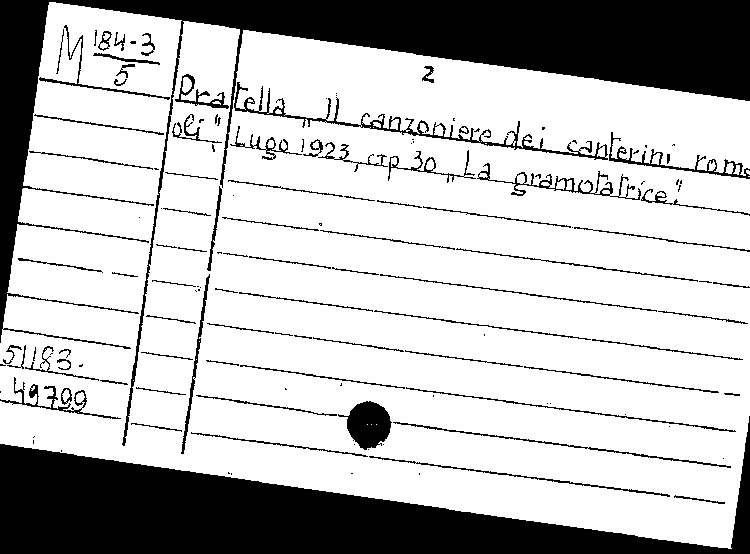 M 184-3
5
2
Pratella „Il canzoniere dei canterini roma
oli“, Lugo 1923, стр 30 „La gramotatrice“.
51183.
49799